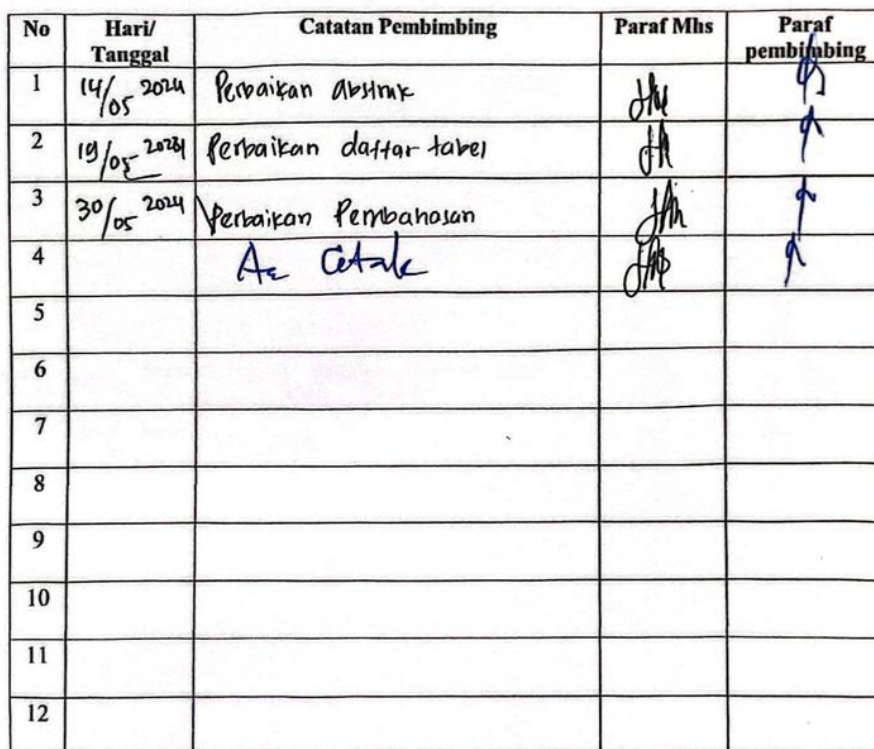 No Hari/ Tanggal Catatan Pembimbing Paraf Mhs Paraf pembimbing
1 14/05 2024 Perbaikan abstrak
2 19/05 2024 Perbaikan daftar tabel
3 30/05 2024 Perbaikan Pembahasan
4 Acc Cetak
5
6
7
8
9
10
11
12